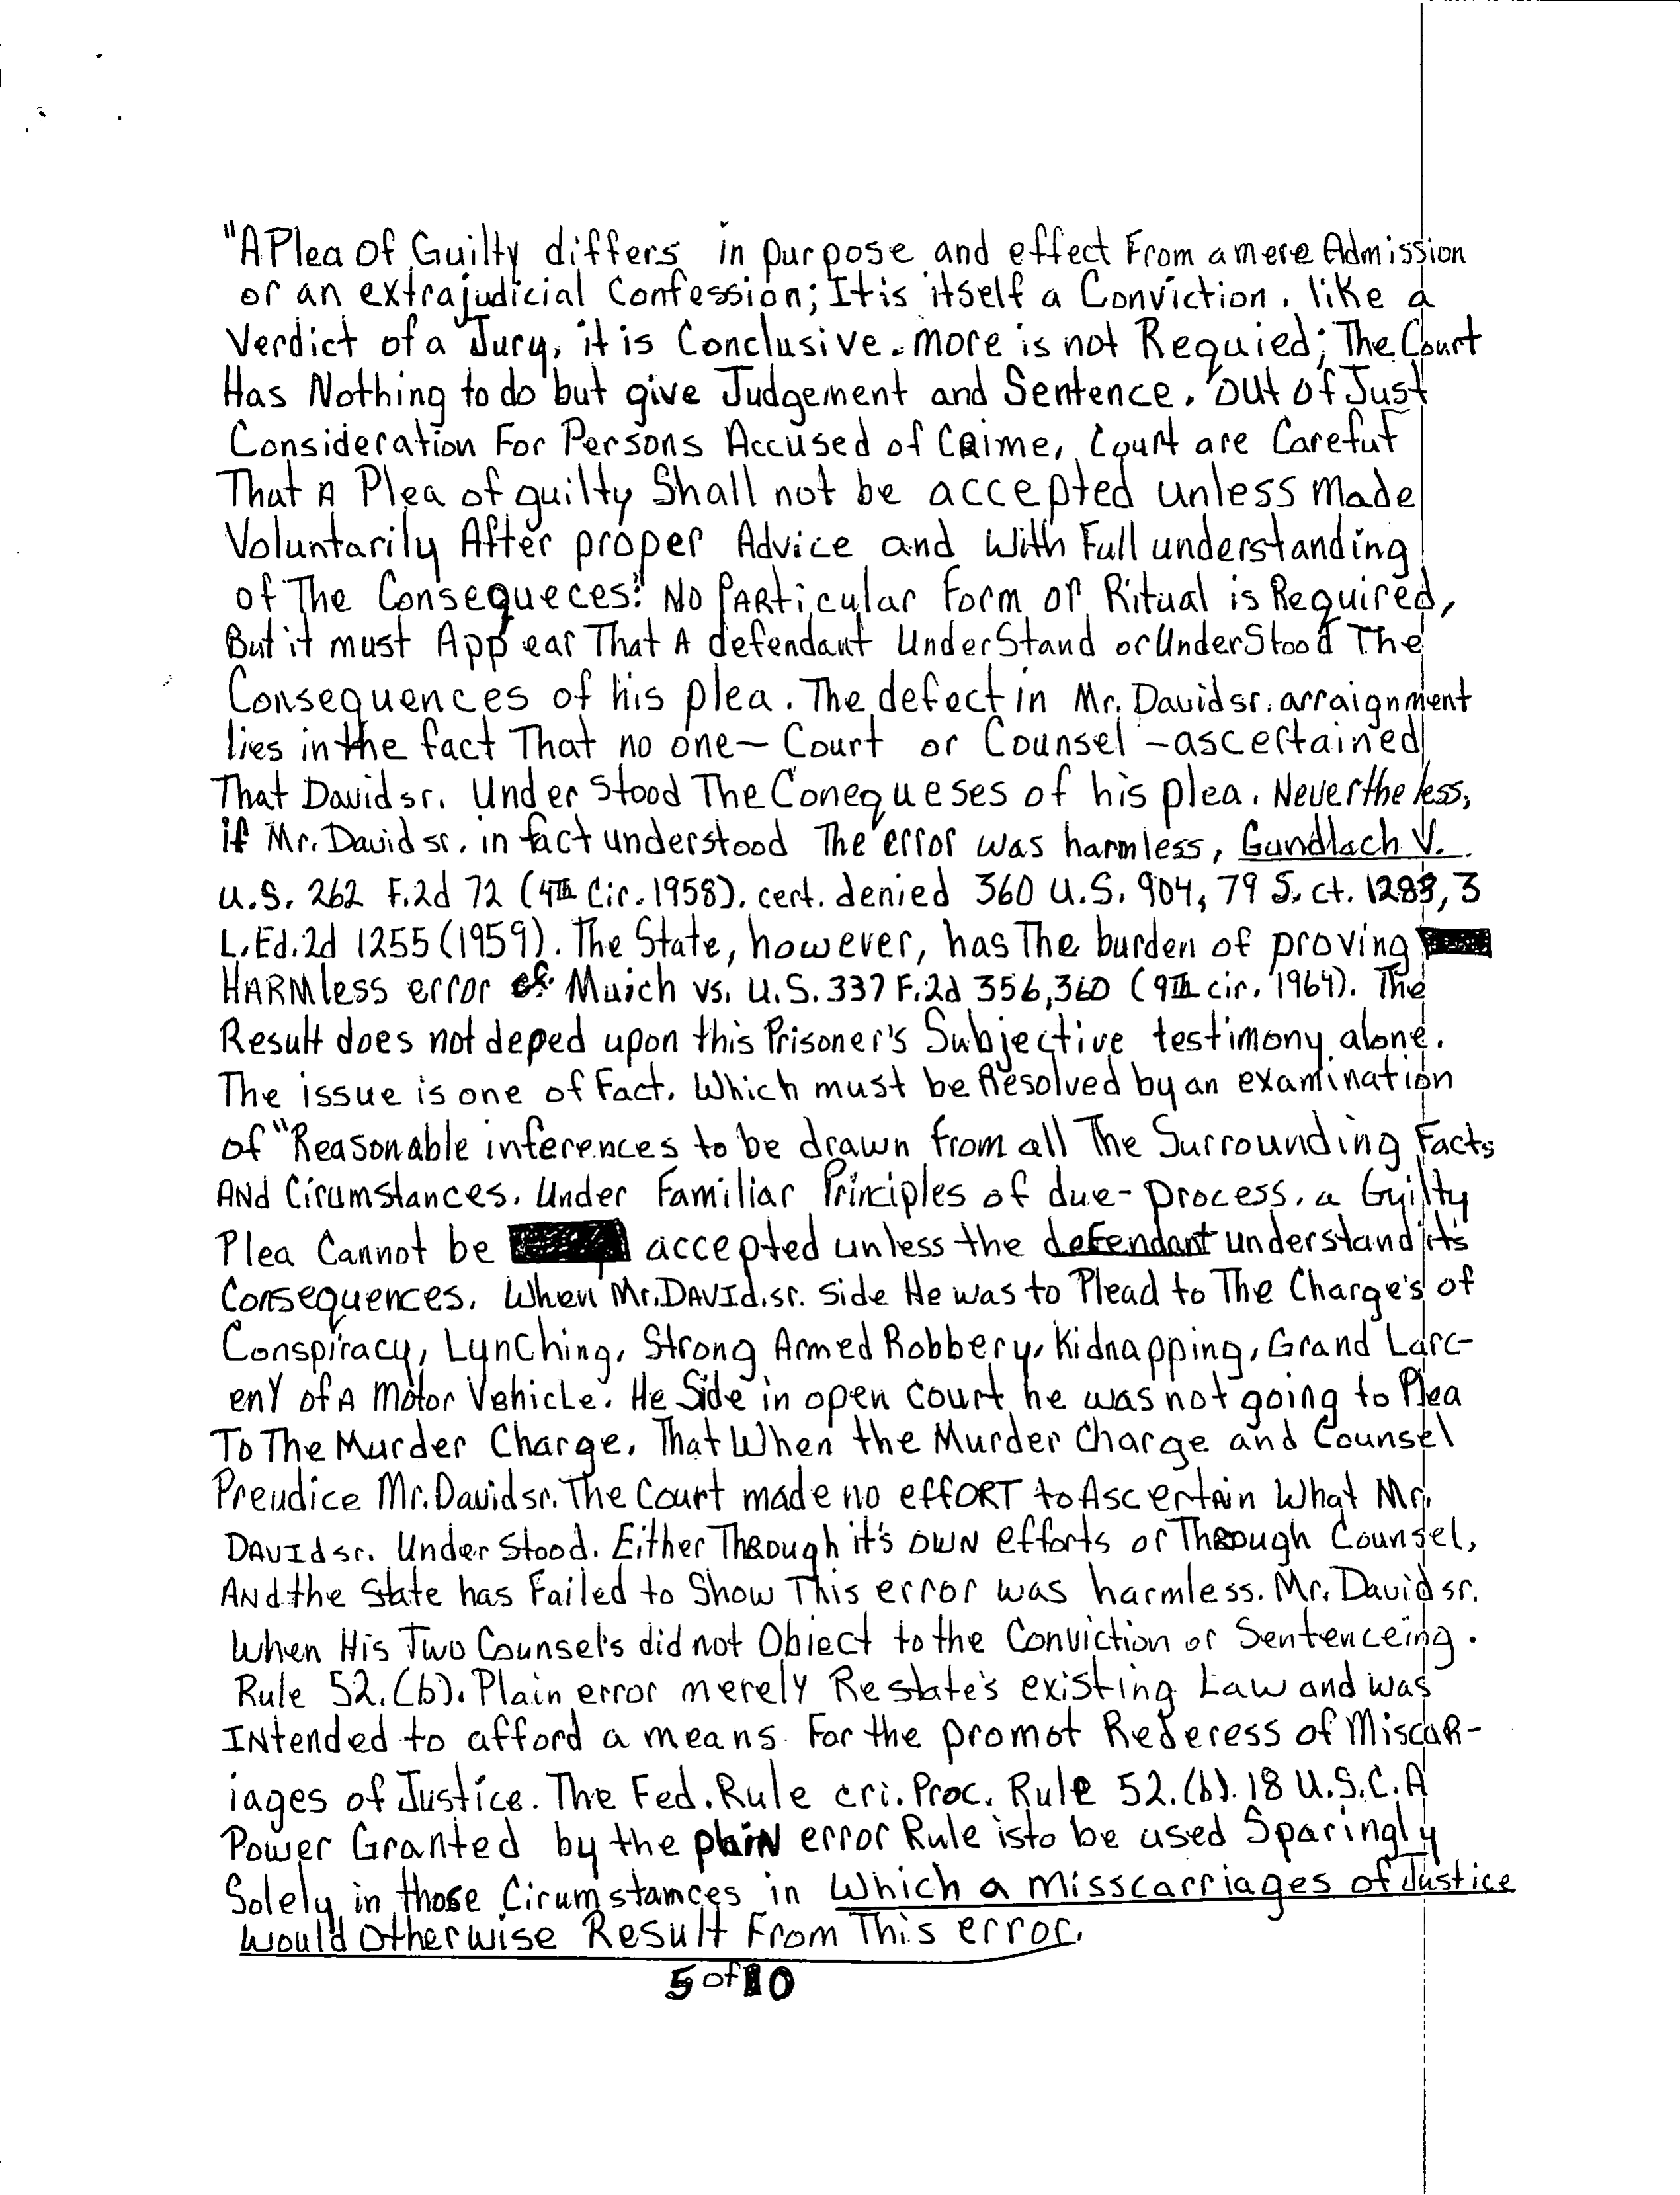 "A Plea Of Guilty differs in purpose and effect From a mere Admission
or an extrajudicial Confession; It is itself a Conviction. like a
Verdict of a Jury, it is Conclusive. more is not Requied; The Court
Has Nothing to do but give Judgement and Sentence. Out of Just
Consideration For Persons Accused of CRime, Court are Carefut
That A Plea of guilty Shall not be accepted unless made
Voluntarily After proper Advice and With Full understanding
of The Consequeces." No PARticular Form or Ritual is Required,
But it must Appear That A defendant UnderStand or UnderStood The
Consequences of his plea. The defect in Mr. David sr. arraignment
lies in the fact That no one- Court or Counsel -ascertained
That David sr. UnderStood The Conequeses of his plea. Nevertheless,
if Mr. David sr. in fact understood The error was harmless, Gundlach V.
U.S. 262 F.2d 72 (4th Cir. 1958). cert. denied 360 U.S. 904, 79 S. ct. 1283, 3
L.Ed.2d 1255 (1959). The State, however, has The burden of proving
HARMless error of Muich vs. U.S. 337 F.2d 356,360 (9th cir. 1964). The
Result does not deped upon this Prisoner's Subjective testimony alone.
The issue is one of Fact. Which must be Resolved by an examination
of "Reasonable inferences to be drawn from all The Surrounding Facts
ANd Cirumstances. Under Familiar Principles of due-process, a Guilty
Plea Cannot be accepted unless the defendant understand it's
Consequences. When Mr. DAVId. sr. side He was to Plead to The Charge's of
Conspiracy, LynChing, Strong Armed Robbery, Kidnapping, Grand Larc-
enY of A Motor Vehicle. He Side in open Court he was not going to Plea
To The Murder Charge. That When the Murder Charge and Counsel
Preudice Mr. David sr. The Court made no effORT to Ascertain What Mr.
DAVId sr. UnderStood. Either ThRough it's OWN efforts or ThRough Counsel,
ANd the State has Failed to Show This error was harmless. Mr. David sr.
When His Two Counsel's did not Obiect to the Conviction or Sentenceing.
Rule 52.(b). Plain error merely Restate's existing Law and was
INtended to afford a means For the promot Rederess of MiscaR-
iages of Justice. The Fed. Rule cri. Proc. Rule 52.(b). 18 U.S.C.A
Power Granted by the plaiN error Rule is to be used Sparingly
Solely in those Cirumstances in Which a misscarriages of Justice
Would Otherwise Result From This error.
5 of 10